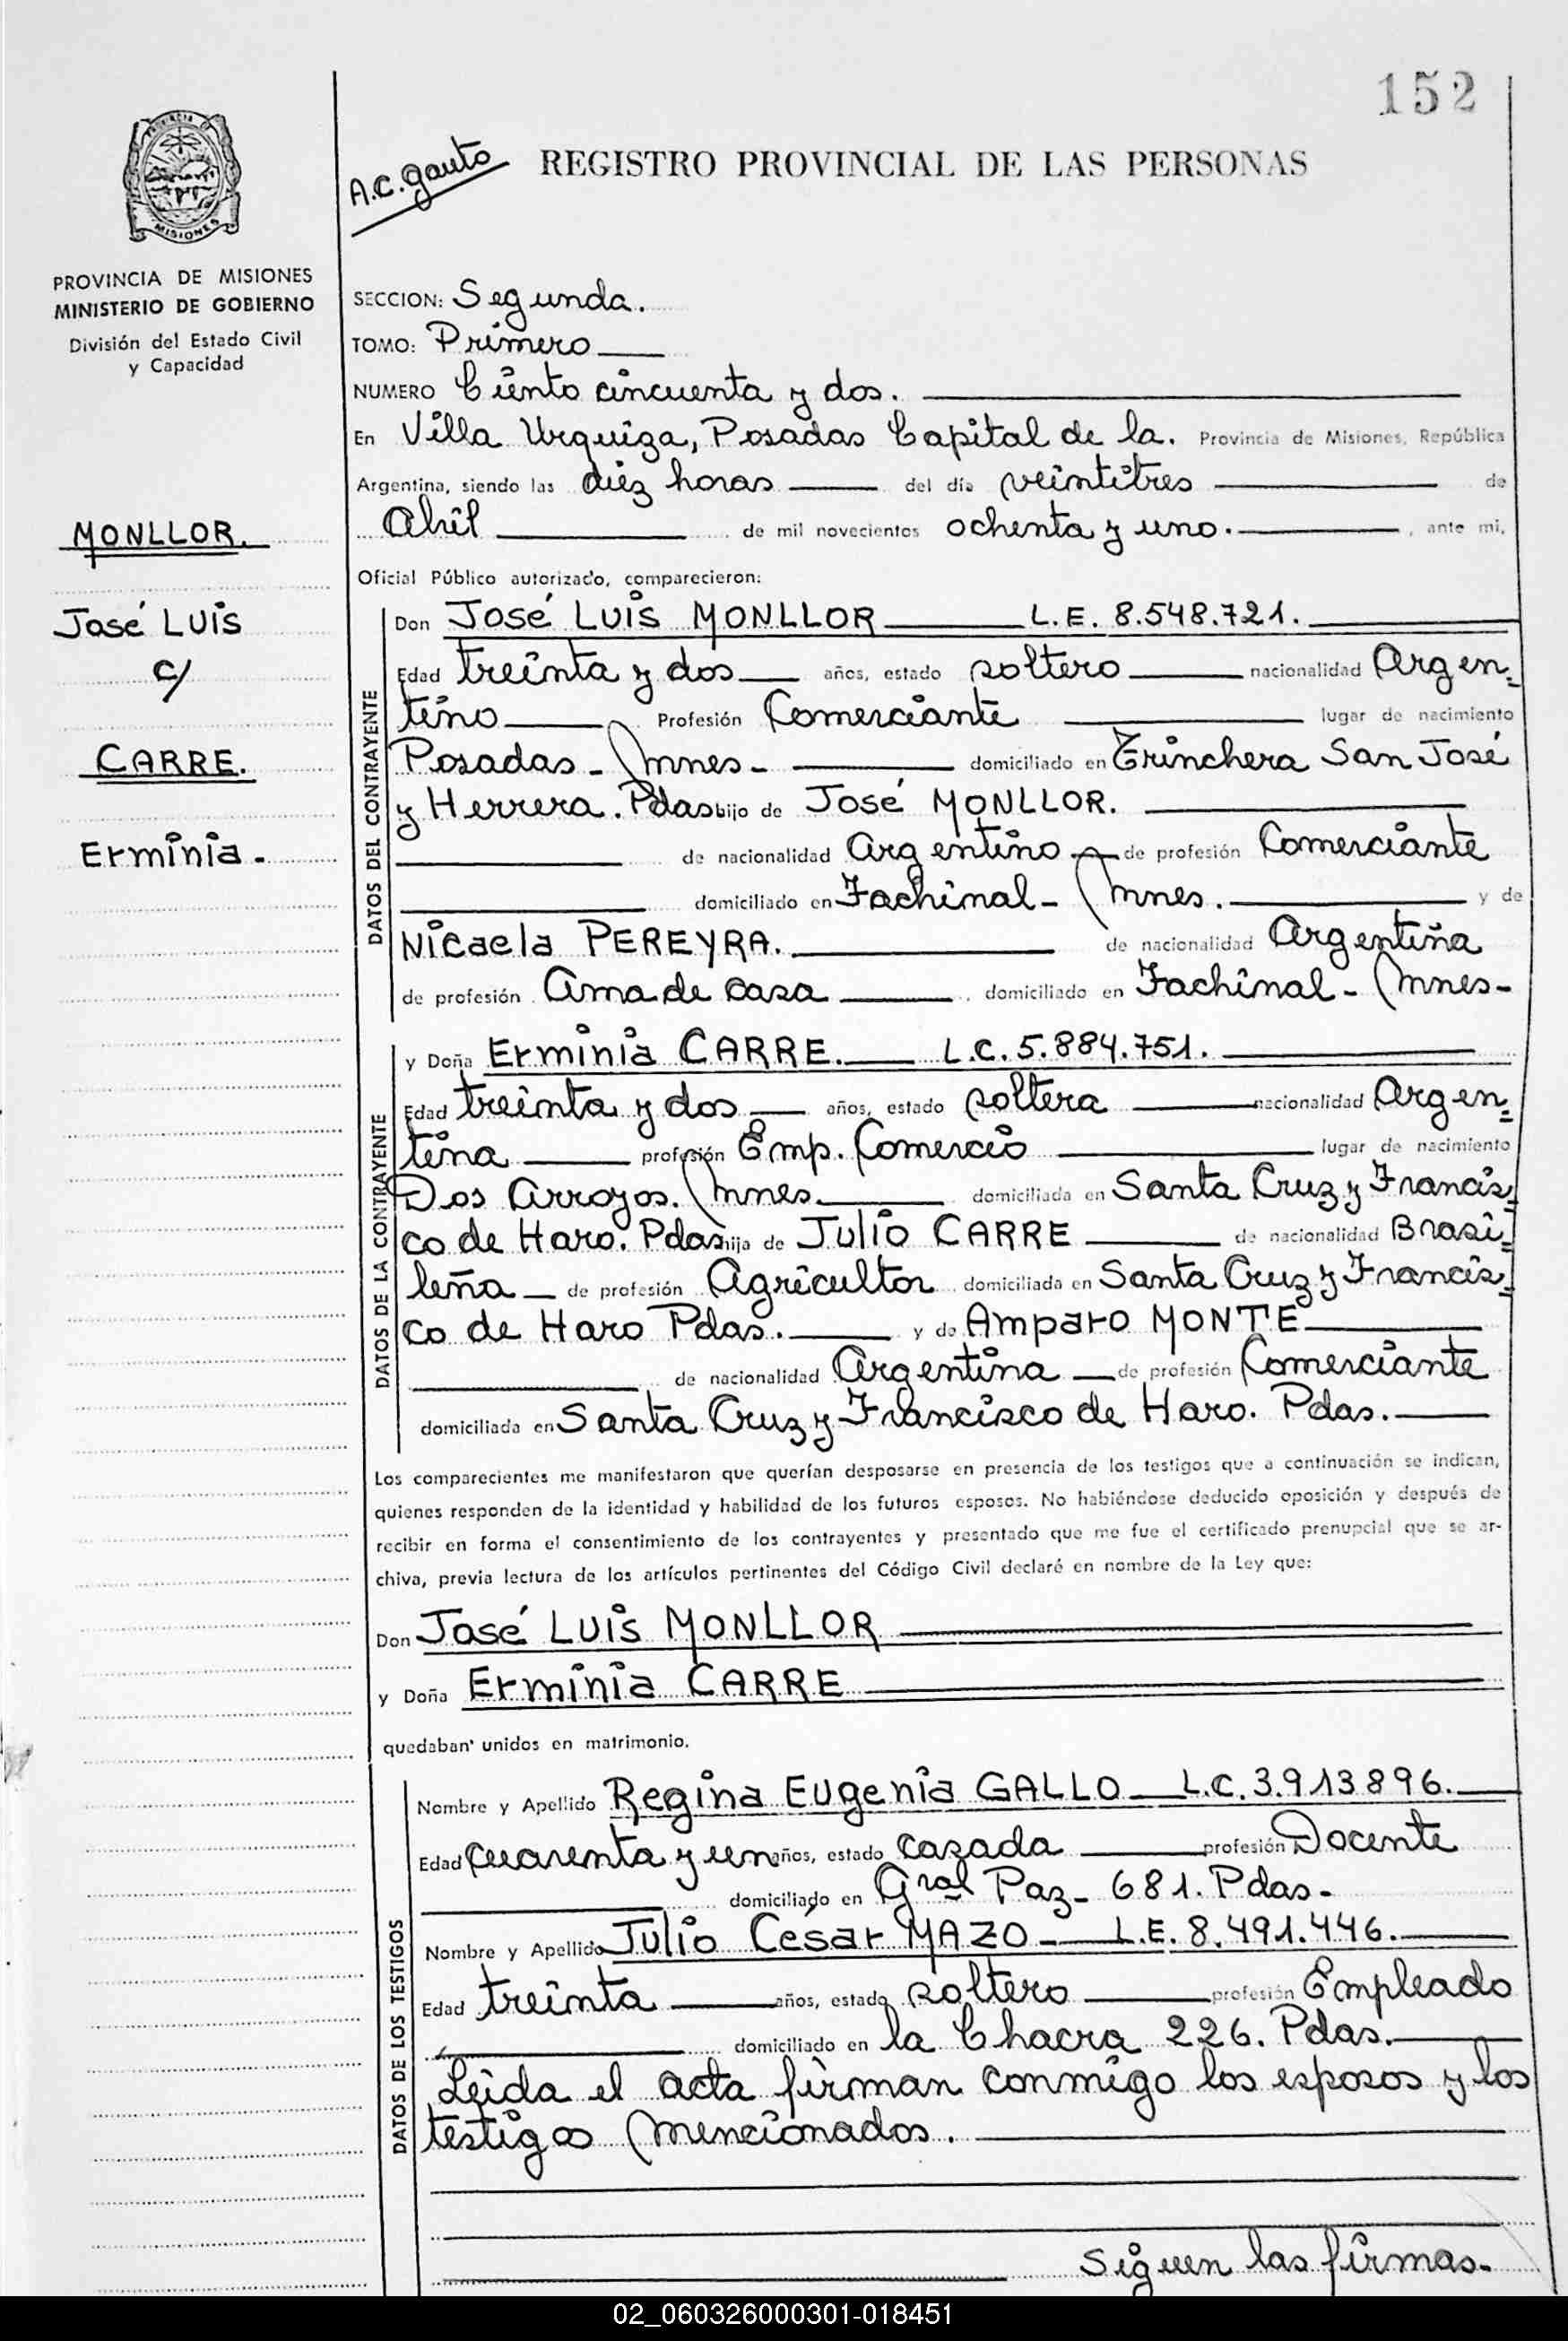 152
A.C. Gauto
REGISTRO PROVINCIAL DE LAS PERSONAS
PROVINCIA DE MISIONES
MINISTERIO DE GOBIERNO
División del Estado Civil
y Capacidad
MONLLOR.
José LUIS
c/
CARRE.
Erminia.
SECCION: Segunda.
TOMO: Primero
NUMERO Ciento cincuenta y dos.
En Villa Urquiza, Posadas Capital de la. Provincia de Misiones, República
Argentina, siendo las diez horas del día veintitres de
Abril de mil novecientos ochenta y uno. , ante mi,
Oficial Público autorizado, comparecieron:
DATOS DEL CONTRAYENTE
Don José LUIS MONLLOR L.E. 8.548.721.
Edad treinta y dos años, estado soltero nacionalidad Argen=
tino Profesión Comerciante lugar de nacimiento
Posadas - Mnes - domiciliado en Trinchera San José
y Herrera. Pdas hijo de José MONLLOR.
de nacionalidad Argentino de profesión Comerciante
domiciliado en Fachinal - Mnes. y de
Micaela PEREYRA. de nacionalidad Argentina
de profesión Ama de casa domiciliado en Fachinal - Mnes-
DATOS DE LA CONTRAYENTE
y Doña Erminia CARRE. L.C. 5.884.751.
Edad treinta y dos años, estado soltera nacionalidad Argen=
tina profesión Emp. Comercio lugar de nacimiento
Dos Arroyos. Mnes. domiciliada en Santa Cruz y Francis=
co de Haro. Pdas hija de JULIO CARRE de nacionalidad Brasi=
leña de profesión Agricultor domiciliada en Santa Cruz y Francis=
co de Haro Pdas. y de Amparo MONTE
de nacionalidad Argentina de profesión Comerciante
domiciliada en Santa Cruz y Francisco de Haro. Pdas.
Los comparecientes me manifestaron que querían desposarse en presencia de los testigos que a continuación se indican,
quienes responden de la identidad y habilidad de los futuros esposos. No habiéndose deducido oposición y después de
recibir en forma el consentimiento de los contrayentes y presentado que me fue el certificado prenupcial que se ar-
chiva, previa lectura de los artículos pertinentes del Código Civil declaré en nombre de la Ley que:
Don José LUIS MONLLOR
y Doña Erminia CARRE
quedaban unidos en matrimonio.
DATOS DE LOS TESTIGOS
Nombre y Apellido Regina EUGENIA GALLO L.C. 3.913.896.
Edad cuarenta y un años, estado casada profesión Docente
domiciliado en Gral Paz - 681. Pdas -
Nombre y Apellido JULIO César MAZO - L.E. 8.491.446.
Edad treinta años, estado soltero profesión Empleado
domiciliado en la Chacra 226. Pdas.
Leida el acta firman conmigo los esposos y los
testigos mencionados.
Siguen las firmas.
02_060326000301-018451